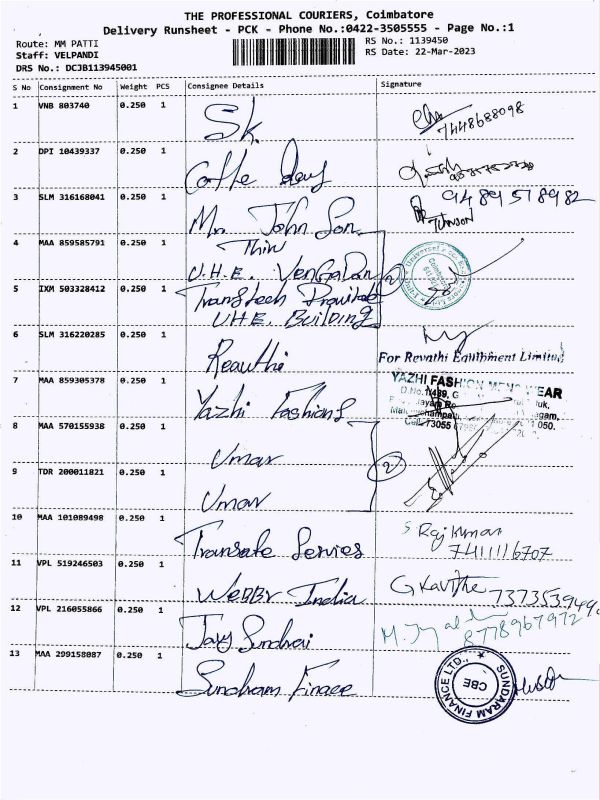 THE PROFESSIONAL COURIERS, Coimbatore
Delivery Runsheet - PCK - Phone No.:0422-3505555 - Page No.:1
Route: MM PATTI
RS No.: 1139450
Staff: VELPANDI
RS Date: 22-Mar-2023
DRS No.: DCJB113945001
S No Consignment No Weight PCS Consignee Details Signature
1 VNB 803740 0.250 1 Sk.
7448688098
2 DPI 10439337 0.250 1 Coffe Day
3 SLM 316168041 0.250 1 Mr. John Son 9489518982
Johnson
4 MAA 859585791 0.250 1 Thin
U.H.E.
2
5 IXM 503328412 0.250 1 Transtech
UHE. Building
6 SLM 316220285 0.250 1 Reauthi
For Revathi Equipment Limited
7 MAA 859305378 0.250 1 Yazhi Fashions
YAZHI FASHION MENS WEAR
8 MAA 570155938 0.250 1 Umar
2
9 TDR 200011821 0.250 1 Umar
10 MAA 101089498 0.250 1 Transafe Servies
S Rajkumar
7411116707
11 VPL 519246503 0.250 1 WeBBY India
G Kavitha
12 VPL 216055866 0.250 1 8778967972
13 MAA 299158087 0.250 1 Sundram Finace
SUNDARAM FINANCE LTD.,
CBE